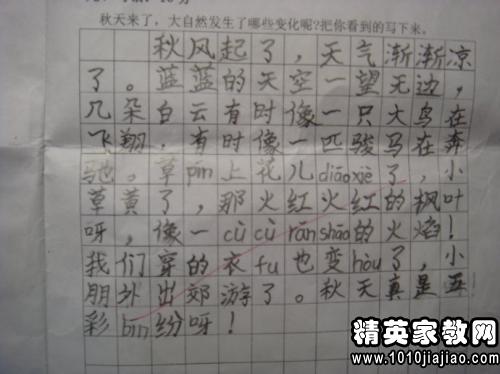 秋天来了，大自然发生了哪些变化呢?把你看到的写下来。
秋风起了，天气渐渐凉
了。蓝蓝的天空一望无边，
几朵白云有时像一只大鸟在
飞翔，有时像一匹骏马在奔
驰。草pín上花儿diāoxiè了，小
草黄了，那火红火红的枫叶
呀，像一cù cù ránshāo的火焰！
我们穿的衣fu也变hòu了，小
朋外出郊游了。秋天真是五
彩bīn纷呀！
精英家教网
www.1010jiajiao.com